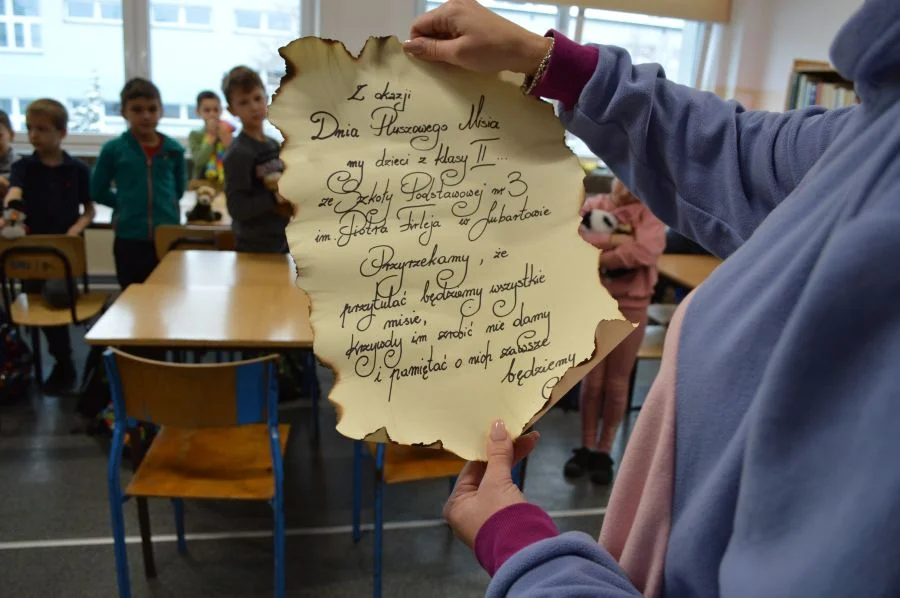 Z okazji
Dnia Pluszowego Misia
my dzieci z klasy II...
ze Szkoły Podstawowej nr 3
im. Piotra Firleja w Lubartowie
Przyrzekamy, że
przytulać będziemy wszystkie
misie,
krzywdy im zrobić nie damy
i pamiętać o nich zawsze
będziemy